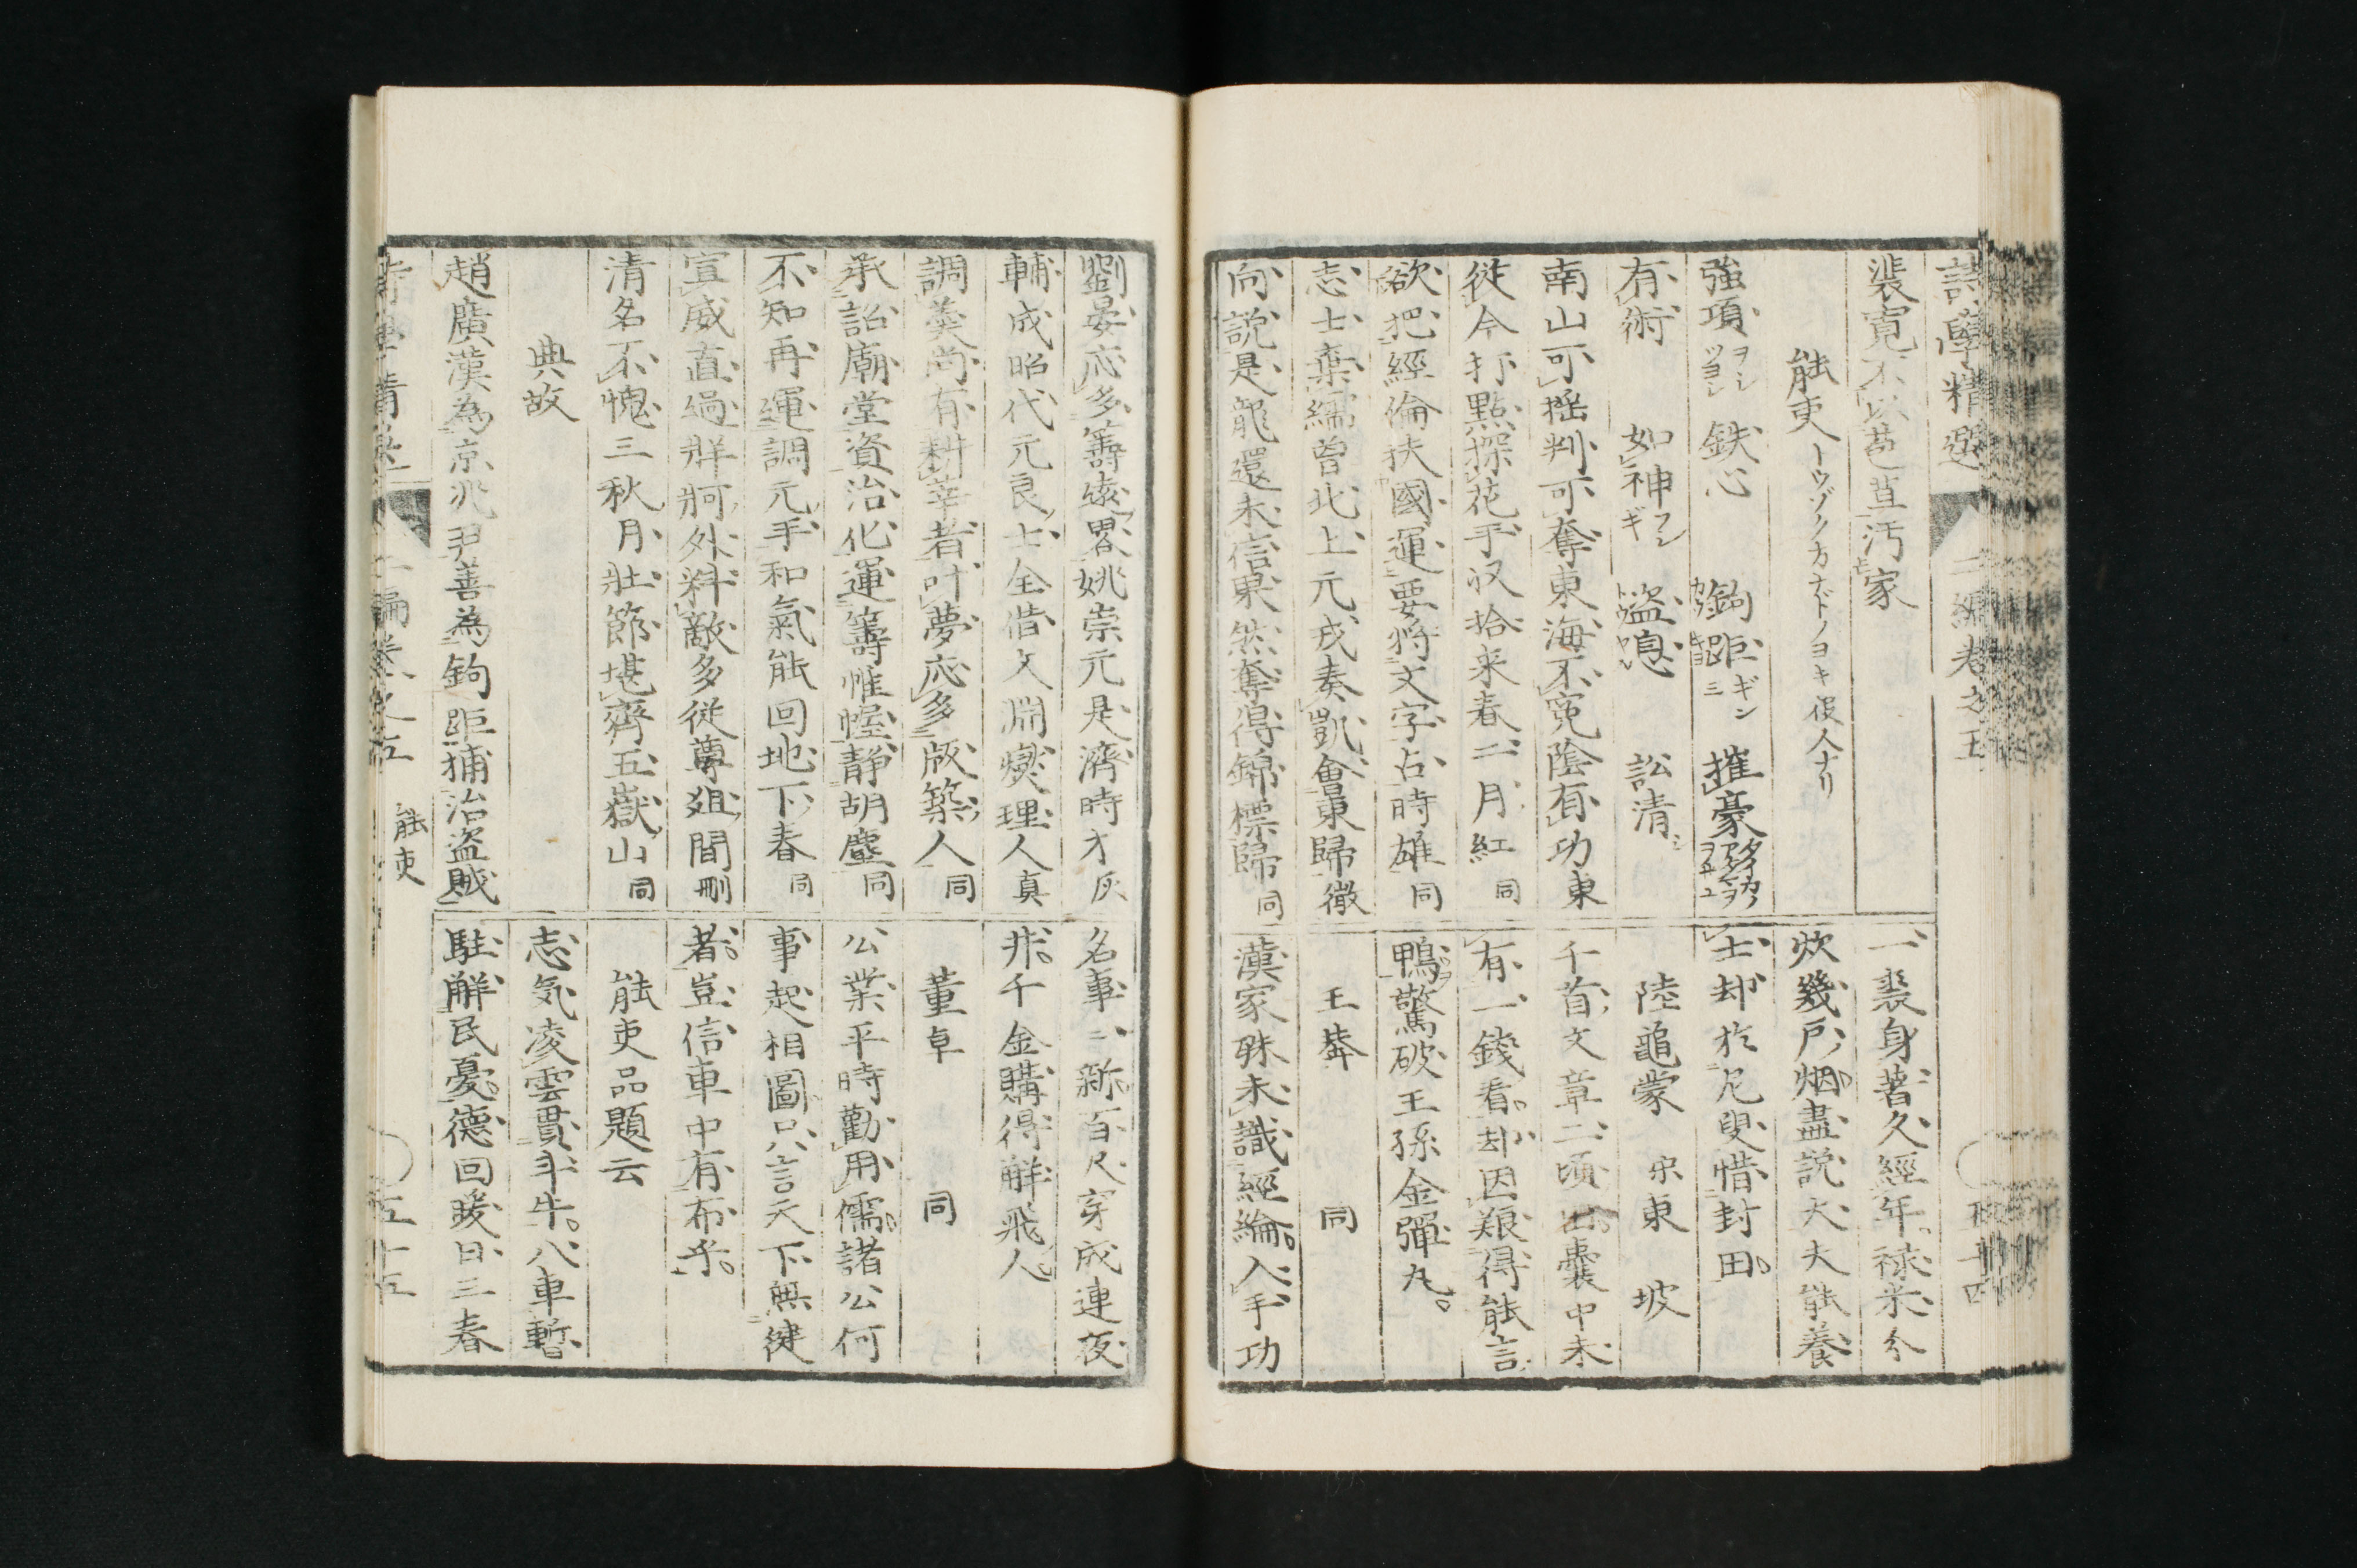 詩學精選 二編卷之五
裴寛不以苞苴汚家
能吏 ーウゾクカナドノヨキ役人ナリ
強項 ヲシツヨシ 鉄心 鉤距 ギン 摧豪
有術 如神 盗息 訟清
南山可揺判可奪東海不寃陰有功東
従今打點探花手収拾来春二月紅 同
欲把經倫扶國運要将文字占時雄 同
志士棄繻曽北上元戎奏凱會東歸 徴
向説是龍還未信果然奪得錦標歸 同
一裘身著久經年禄米分
炊幾戸烟盡説大夫能養
士却於尼叟惜封田
陸龜蒙 宋東坡
千首文章二頃出嚢中未
有一錢看却因艱得能言
鴨驚破王孫金彈丸
王莽 同
漢家殊未識經綸入手功
劉晏応多籌遠畧姚崇元是濟時才 灰
輔成昭代元良士全借文淵燮理人 真
調羹尚有耕莘者叶夢応多版築人 同
承詔廟堂資治化運籌帷幄静胡塵 同
不知再運調元手和氣能回地下春 同
宣威直過牂牁外料敵多従尊俎間 刪
清名不愧三秋月壮節堪齊五嶽山 同
典故
趙廣漢為京兆尹善為鉤距捕治盗賊
名事二新百尺穿成連夜
井千金購得觧飛人
董卓 同
公業平時勸用儒諸公何
事起相圖只言天下無健
者豈信車中有布乎
能吏品題云
志気凌雲貫斗牛八車暫
駐觧民憂徳回暖日三春
二編卷之五 能吏 五十五